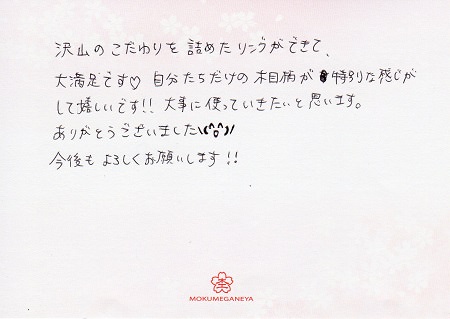 沢山のこだわりを詰めたリングができて、
大満足です♡ 自分たちだけの木目柄が特別な感じが
して嬉しいです!! 大事に使っていきたいと思います。
ありがとうございました\(^o^)/
今後もよろしくお願いします!!
MOKUMEGANEYA